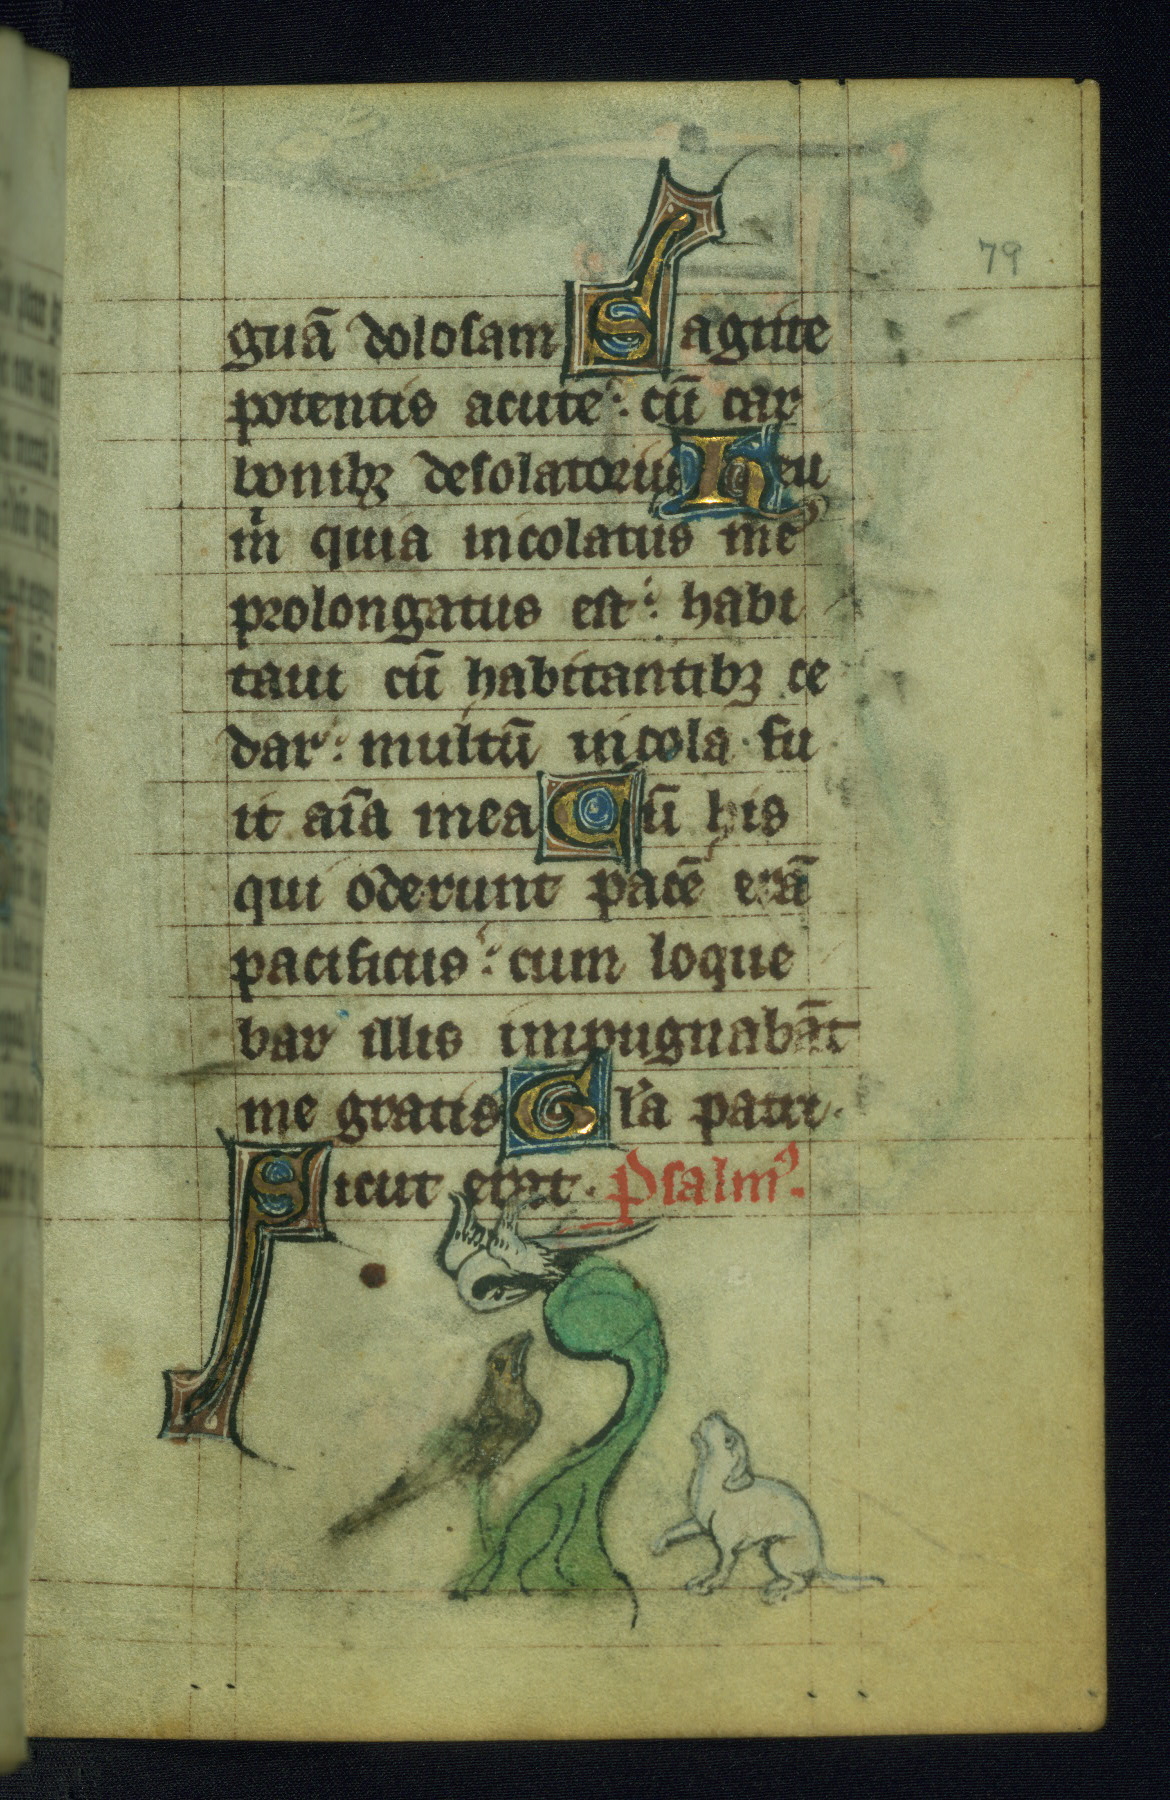 79
guā dolosam Sagitte
potentis acute : cū car
bonibꝫ desolatoriis Heu
m̄ quia incolatus meꝰ
prolongatus est : habi
taui cū habitantibꝫ ce
dar : multū incola fu
it aīa mea Cū his
qui oderunt pacē erā
pacificus : cum loque
bar illis impugnabāt
me gratis Gl'a patri.
Sicut erat. Psalmꝰ.